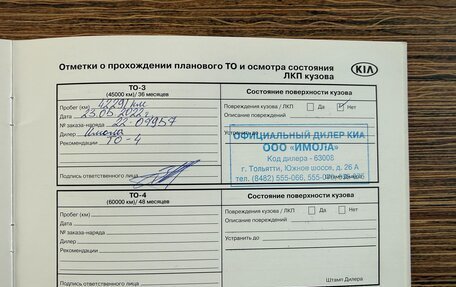 Отметки о прохождении планового ТО и осмотра состояния
ЛКП кузова
KIA
ТО-3
(45000 км)/ 36 месяцев
Состояние поверхности кузова
Пробег (км) 42291 км
Дата 23.05.2022г
№ заказа-наряда 22-09957
Дилер Имола
Рекомендации ТО-4
Подпись ответственного лица
Повреждения кузова / ЛКП Да Нет
Описание повреждений
Устранить до
ОФИЦИАЛЬНЫЙ ДИЛЕР КИА
ООО «ИМОЛА»
Код дилера - 63008
г. Тольятти, Южное шоссе, д. 26 А
тел. (8482) 555-066, 555-
ТО-4
(60000 км)/ 48 месяцев
Состояние поверхности кузова
Пробег (км)
Дата
№ заказа-наряда
Дилер
Рекомендации
Подпись ответственного лица
Повреждения кузова / ЛКП Да Нет
Описание повреждений
Устранить до
Штамп Дилера